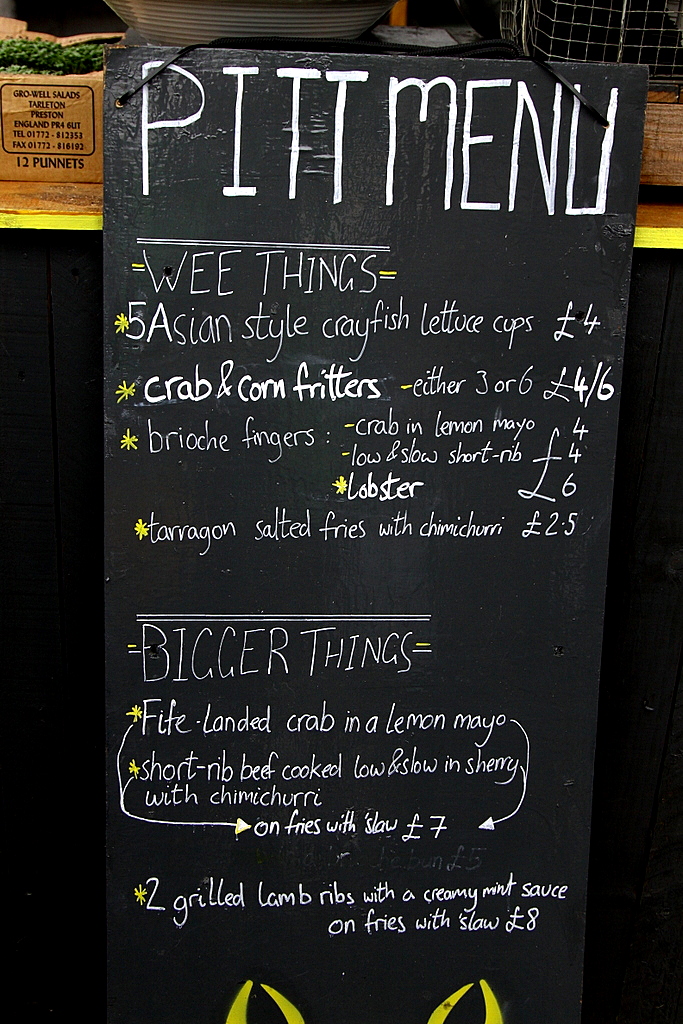 GRO-WELL SALADS
TARLETON
PRESTON
ENGLAND PR4 6UT
TEL 01772 - 812353
FAX 01772 - 816192
12 PUNNETS
PITT MENU
=WEE THINGS=
*5 Asian style crayfish lettuce cups £4
* crab & corn fritters - either 3 or 6 £4/6
* brioche fingers : - crab in lemon mayo £4
- low & slow short-rib £4
*lobster £6
*tarragon salted fries with chimichurri £2.5
=BIGGER THINGS=
*Fife-landed crab in a lemon mayo
*short-rib beef cooked low & slow in sherry
with chimichurri
on fries with 'slaw £7
*2 grilled lamb ribs with a creamy mint sauce
on fries with 'slaw £8